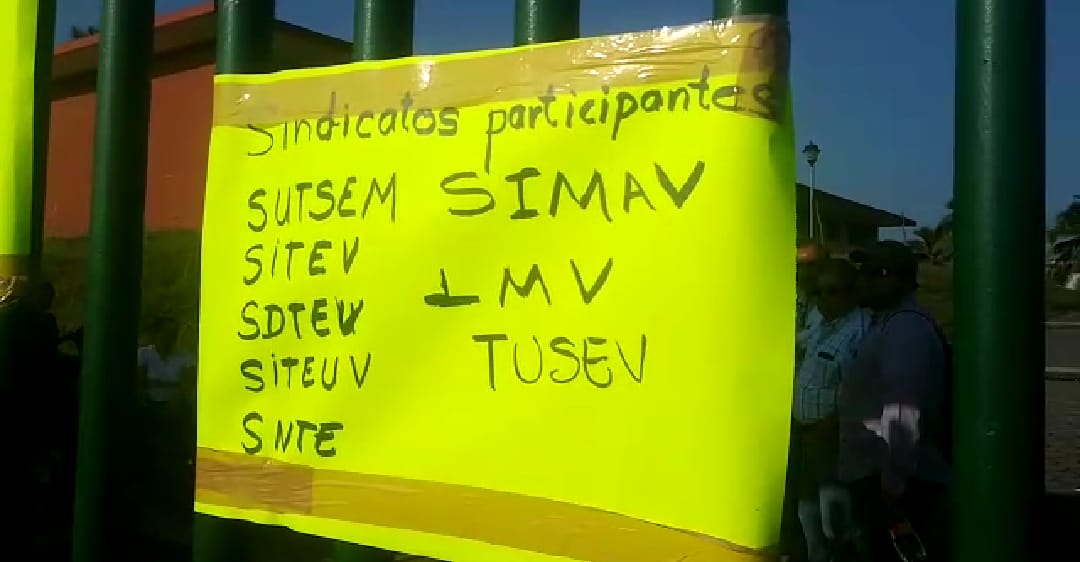 Sindicatos participantes
SUTSEM SIMAV
SiTEV
SDTEV IMV
SiTEUV TUSEV
SNTE